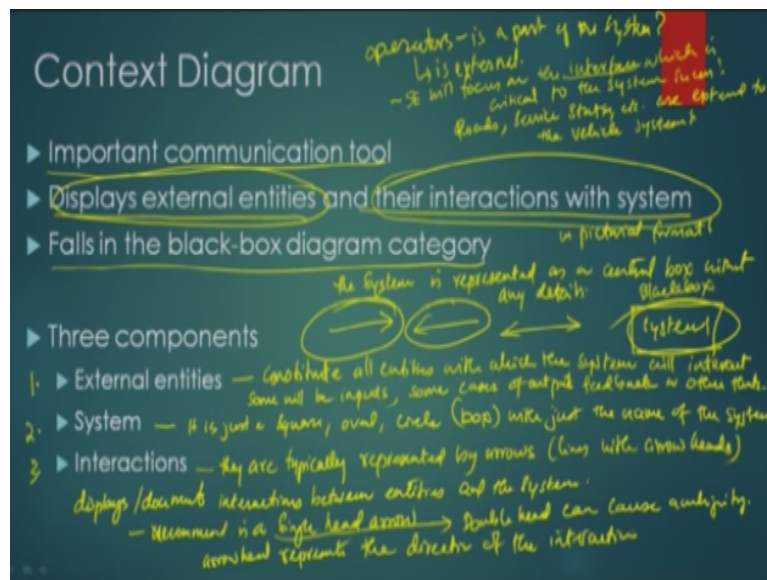 operators - is a part of the system?
Context Diagram
↳ is external.
- SE will focus on the interface which is
critical to the system success!
Roads, Service Station, etc. are external to
the vehicle system
▶ Important communication tool
▶ Displays external entities and their interactions with system
▶ Falls in the black-box diagram category
in pictorial format!
the System is represented as a central box without
any details.
Blackbox
System
▶ Three components
1. ▶ External entities — constitute all entities with which the system will interact
some will be inputs, some cases of output feedback or other
2. ▶ System — it is just a square, oval, circle (box) with just the name of the system
3. ▶ Interactions — they are typically represented by arrows (lines with arrow heads)
displays/documents interactions between entities and the System.
- recommend is a Single head arrow → Double head can cause ambiguity.
arrowhead represents the direction of the interaction